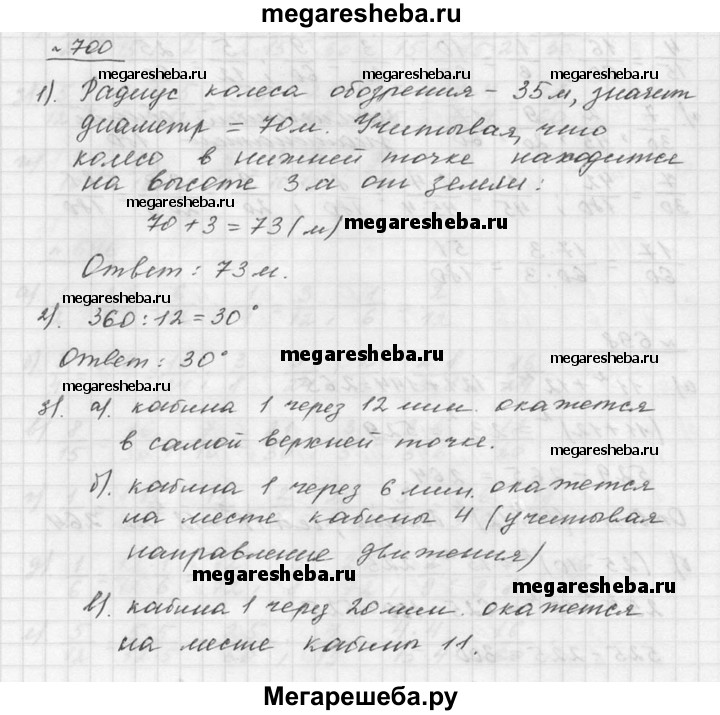 megaresheba.ru
№ 700
megaresheba.ru megaresheba.ru
1). Радиус колеса обозрения – 35м, значит
диаметр = 70м. Учитывая, что
колесо в нижней точке находится
на высоте 3 м от земли:
megaresheba.ru megaresheba.ru
70 + 3 = 73 (м) megaresheba.ru
Ответ: 73 м.
megaresheba.ru
2). 360 : 12 = 30°
Ответ: 30°
megaresheba.ru megaresheba.ru
megaresheba.ru
3). а). кабина 1 через 12 мин. окажется
в самой верхней точке.
megaresheba.ru
б). кабина 1 через 6 мин. окажется
на месте кабины 4 (учитывая
направление движения)
megaresheba.ru megaresheba.ru
в). кабина 1 через 20 мин. окажется
на месте кабины 11.
Мегарешеба.ру